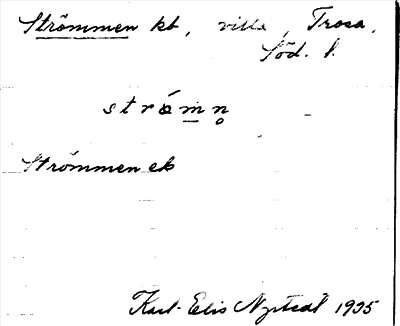 Strömmen kt, villa, Trosa,
Söd. l.
strömn̥
Strömmen ek
Karl-Elis Nyttedt 1935